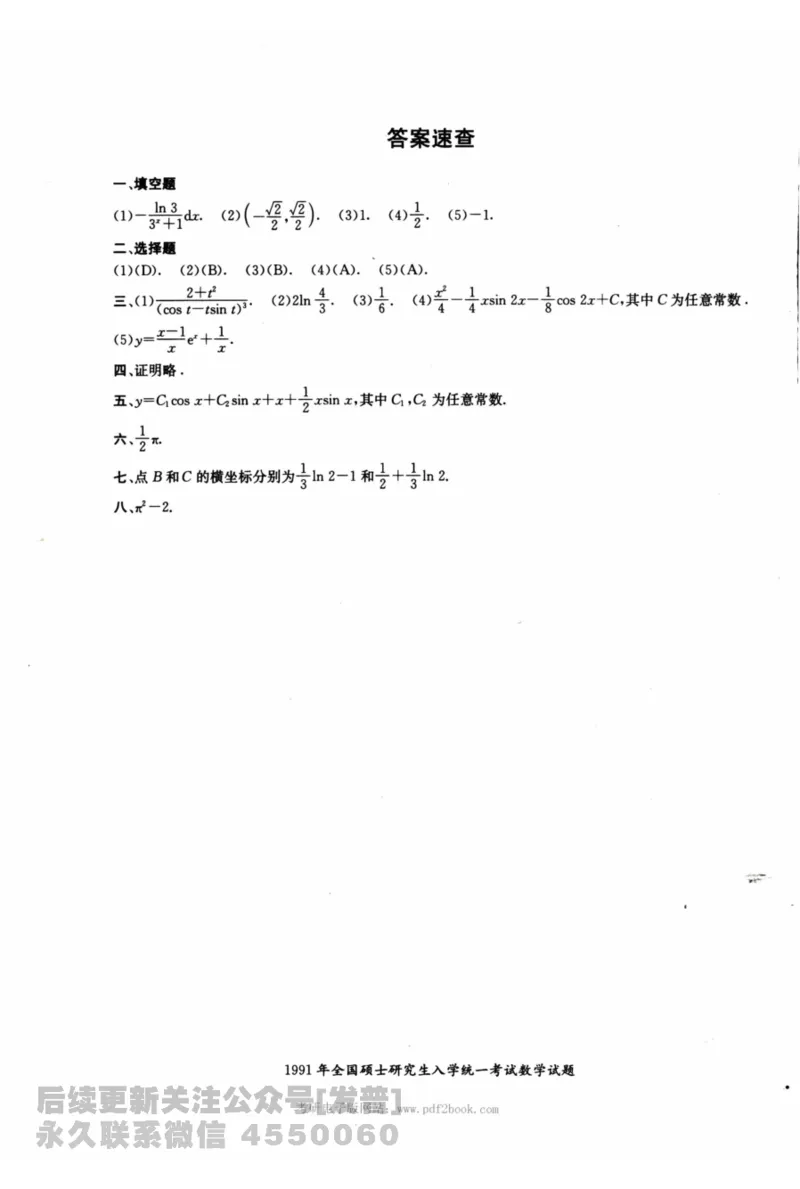 答案速查
一、填空题
(1)-\frac{\ln 3}{3^x+1}dx. (2)(-\frac{\sqrt{2}}{2},\frac{\sqrt{2}}{2}). (3)1. (4)\frac{1}{2}. (5)-1.
二、选择题
(1)(D). (2)(B). (3)(B). (4)(A). (5)(A).
三、(1)\frac{2+t^2}{(\cos t-t\sin t)^3}. (2)2\ln\frac{4}{3}. (3)\frac{1}{6}. (4)\frac{x^2}{4}-\frac{1}{4}x\sin 2x-\frac{1}{8}\cos 2x+C,其中 C 为任意常数.
(5)y=\frac{x-1}{x}e^x+\frac{1}{x}.
四、证明略.
五、y=C_1\cos x+C_2\sin x+x+\frac{1}{2}x\sin x,其中 C_1,C_2 为任意常数.
六、\frac{1}{2}π.
七、点 B 和 C 的横坐标分别为\frac{1}{3}\ln 2-1 和\frac{1}{2}+\frac{1}{3}\ln 2.
八、π^2-2.
1991 年全国硕士研究生入学统一考试数学试题
后续更新关注公众号[发普]
www.pdf2book.com
永久联系微信 4550060